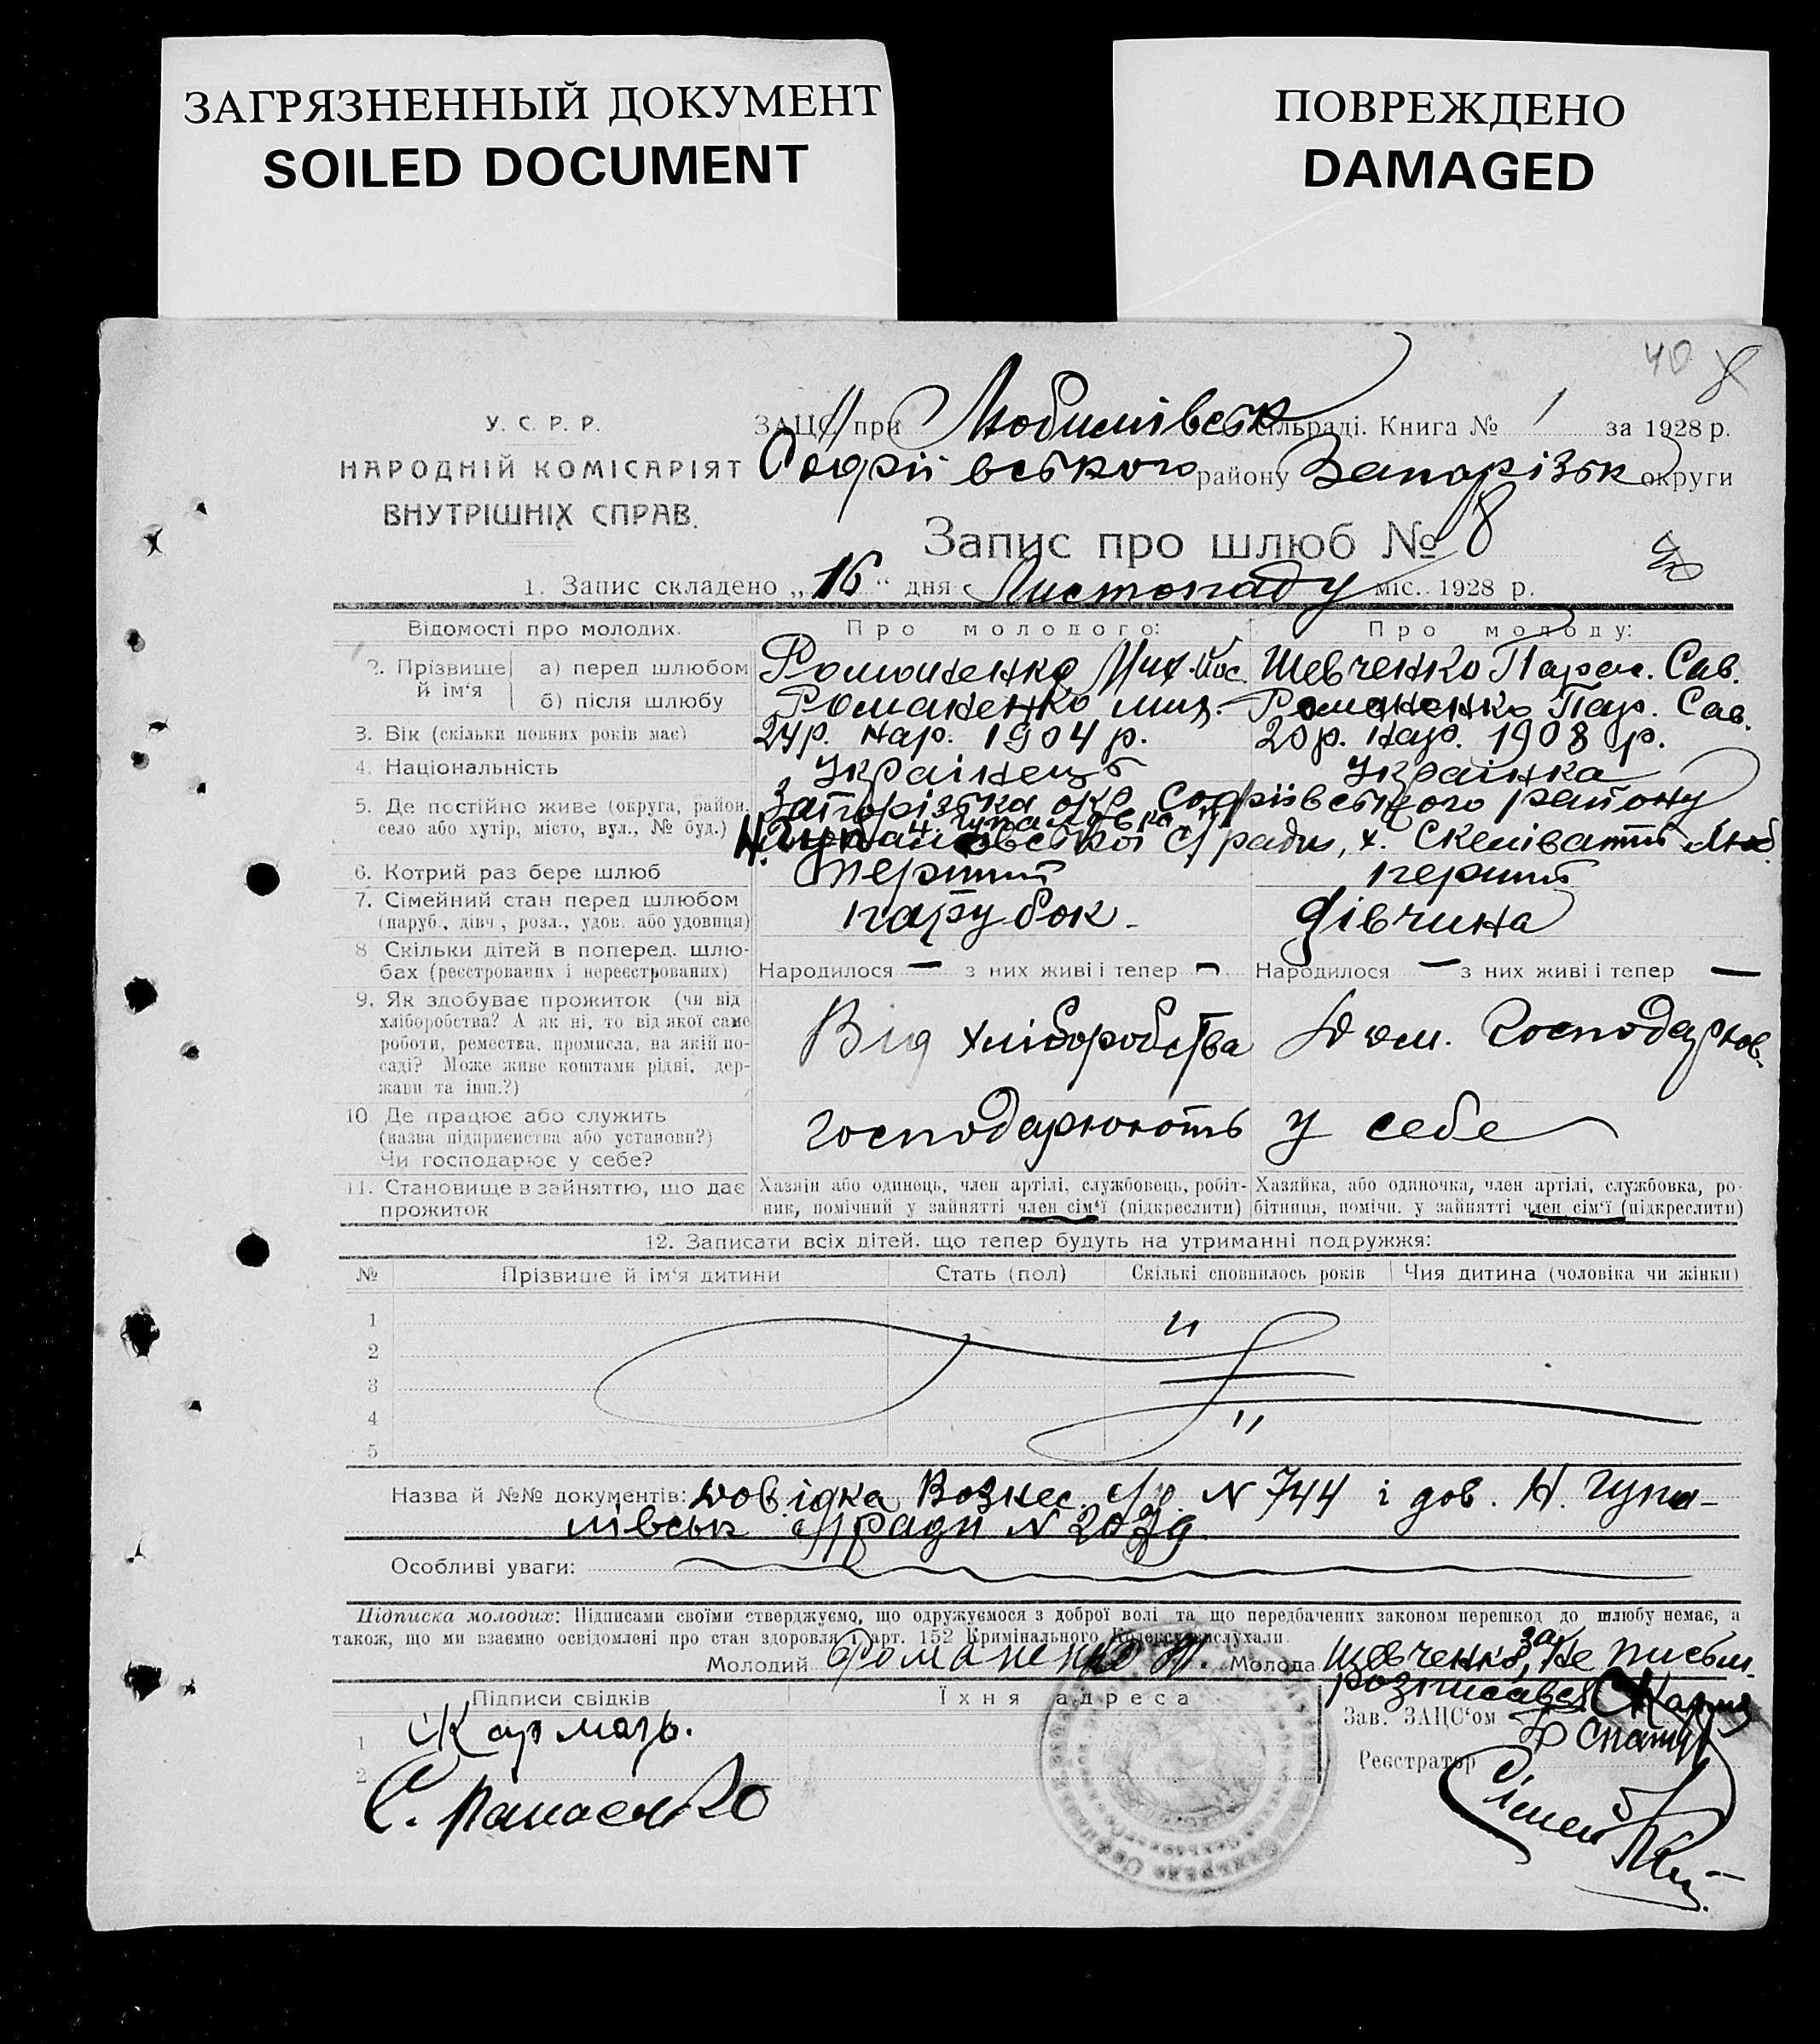 ЗАГРЯЗНЕННЫЙ ДОКУМЕНТ
SOILED DOCUMENT
ПОВРЕЖДЕНО
DAMAGED
40 8
У. С. Р. Р.
НАРОДНІЙ КОМІСАРІЯТ
ВНУТРІШНІХ СПРАВ.
ЗАЦС при Любимівськ сільраді. Книга № 1 за 1928 р.
Софіївського району Запорізьк округи
Запис про шлюб № 8
1. Запис складено „16“ дня Листопаду міс. 1928 р.
Відомості про молодих. Про молодого: Про молоду:
2. Прізвище й ім‘я а) перед шлюбом Романенко Мих. Йос. Шевченко Парас. Сав.
б) після шлюбу Романенко Мих. Романенко Пар. Сав.
3. Вік (скільки повних років має) 24 р. нар. 1904 р. 20 р. нар. 1908 р.
4. Національність Українець Українка
5. Де постійно живе (округа, район, Запорізька окр Софіївського району
село або хутір, місто, вул., № буд.) с/ради, х. Скелюватий Люб.
6. Котрий раз бере шлюб Перший перший
7. Сімейний стан перед шлюбом парубок - дівчина
(паруб., дівч., розл., удов. або удовиця)
8 Скільки дітей в поперед. шлю-
бах (реєстрованих і нереєстрованих) Народилося — з них живі і тепер — Народилося — з них живі і тепер —
9. Як здобуває прожиток (чи від
хліборобства? А як ні, то від якої саме Від хліборобства Дом. Господарюв.
роботи, ремества, промисла, на якій по-
саді? Може живе коштами рідні, дер-
жави та інш.?)
10 Де працює або служить
(назва підприємства або установи?) господарюють у себе
Чи господарює у себе?
11. Становище в зайняттю, що дає Хазяїн або одинець, член артілі, службовець, робіт- Хазяйка, або одиночка, член артілі, службовка, ро-
прожиток ник, помічний у зайнятті член сім‘ї (підкреслити) бітниця, помічн. у зайнятті член сім‘ї (підкреслити)
12. Записати всіх дітей, що тепер будуть на утриманні подружжя:
№ Прізвише й ім‘я дитини Стать (пол) Скількі сповнилось років Чия дитина (чоловіка чи жінки)
1
2
3
4
5
Назва й №№ документів: Довідка Вознес. с/р. N 744 і дов. Н. Гупа-
лівськ с/ради N
Особливі уваги:
Підписка молодих: Підписами своїми стверджуємо, що одружуємося з доброї волі та що передбачених законом перешкод до шлюбу немає, а
також, що ми взаємно освідомлені про стан здоровля і арт. 152 Кримінального Кодексу вислухали.
Молодий Романенко М. Молода за Шевченко, не письм.
розписався
Підписи свідків Їхня адреса Зав. ЗАЦС‘ом
1 Кармазь.
Реєстратор
2
С. Панасенко